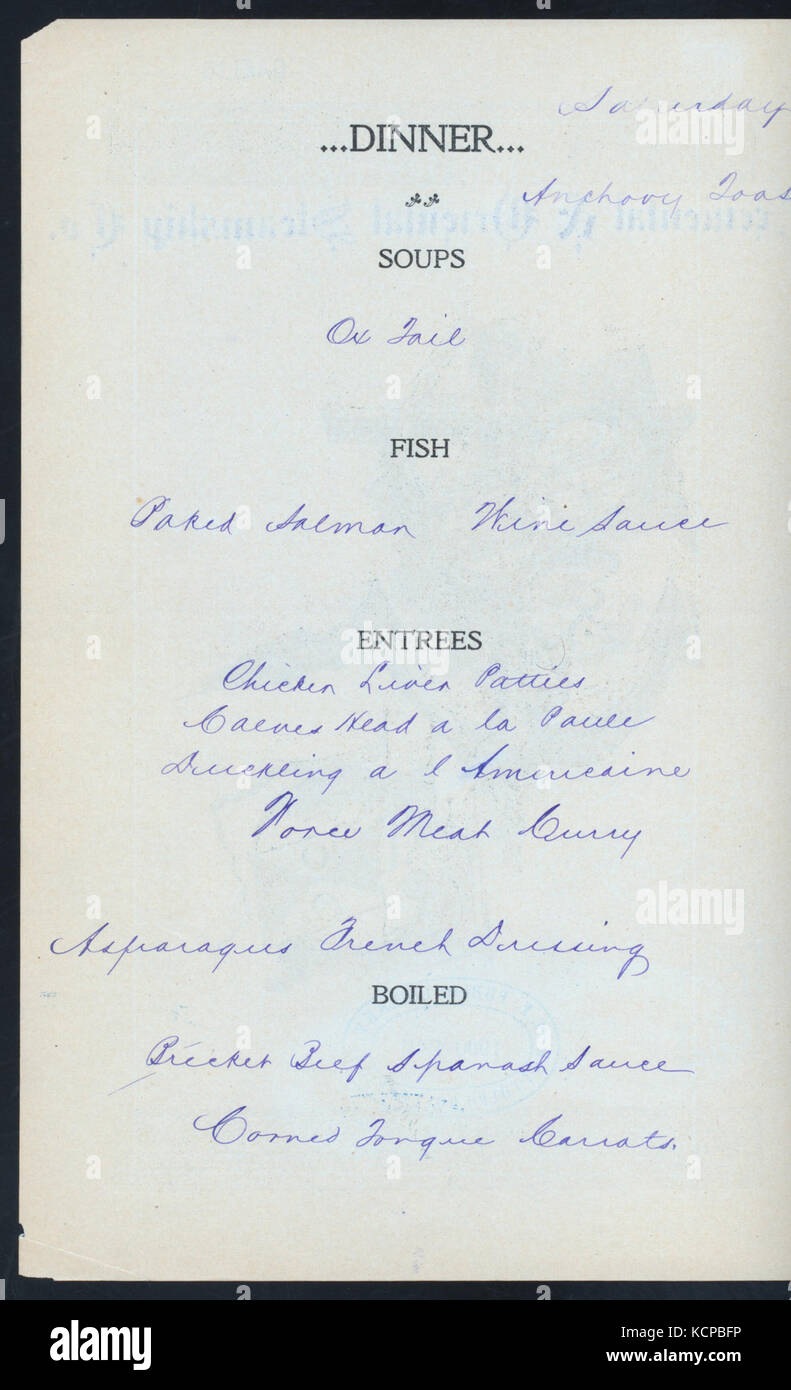 Saturday
...DINNER...
Anchovy Toas
SOUPS
Ox Tail
FISH
Baked Salmon Wine Sauce
ENTREES
Chicken Liver Patties
Calves Head a la Paule
Duckling a l Americaine
Force Meat Curry
Asparagus French Dressing
BOILED
Bricket Beef Spanash Sauce
Corned Tongue Carrots.
alamy
Image ID: KCPBFP
www.alamy.com